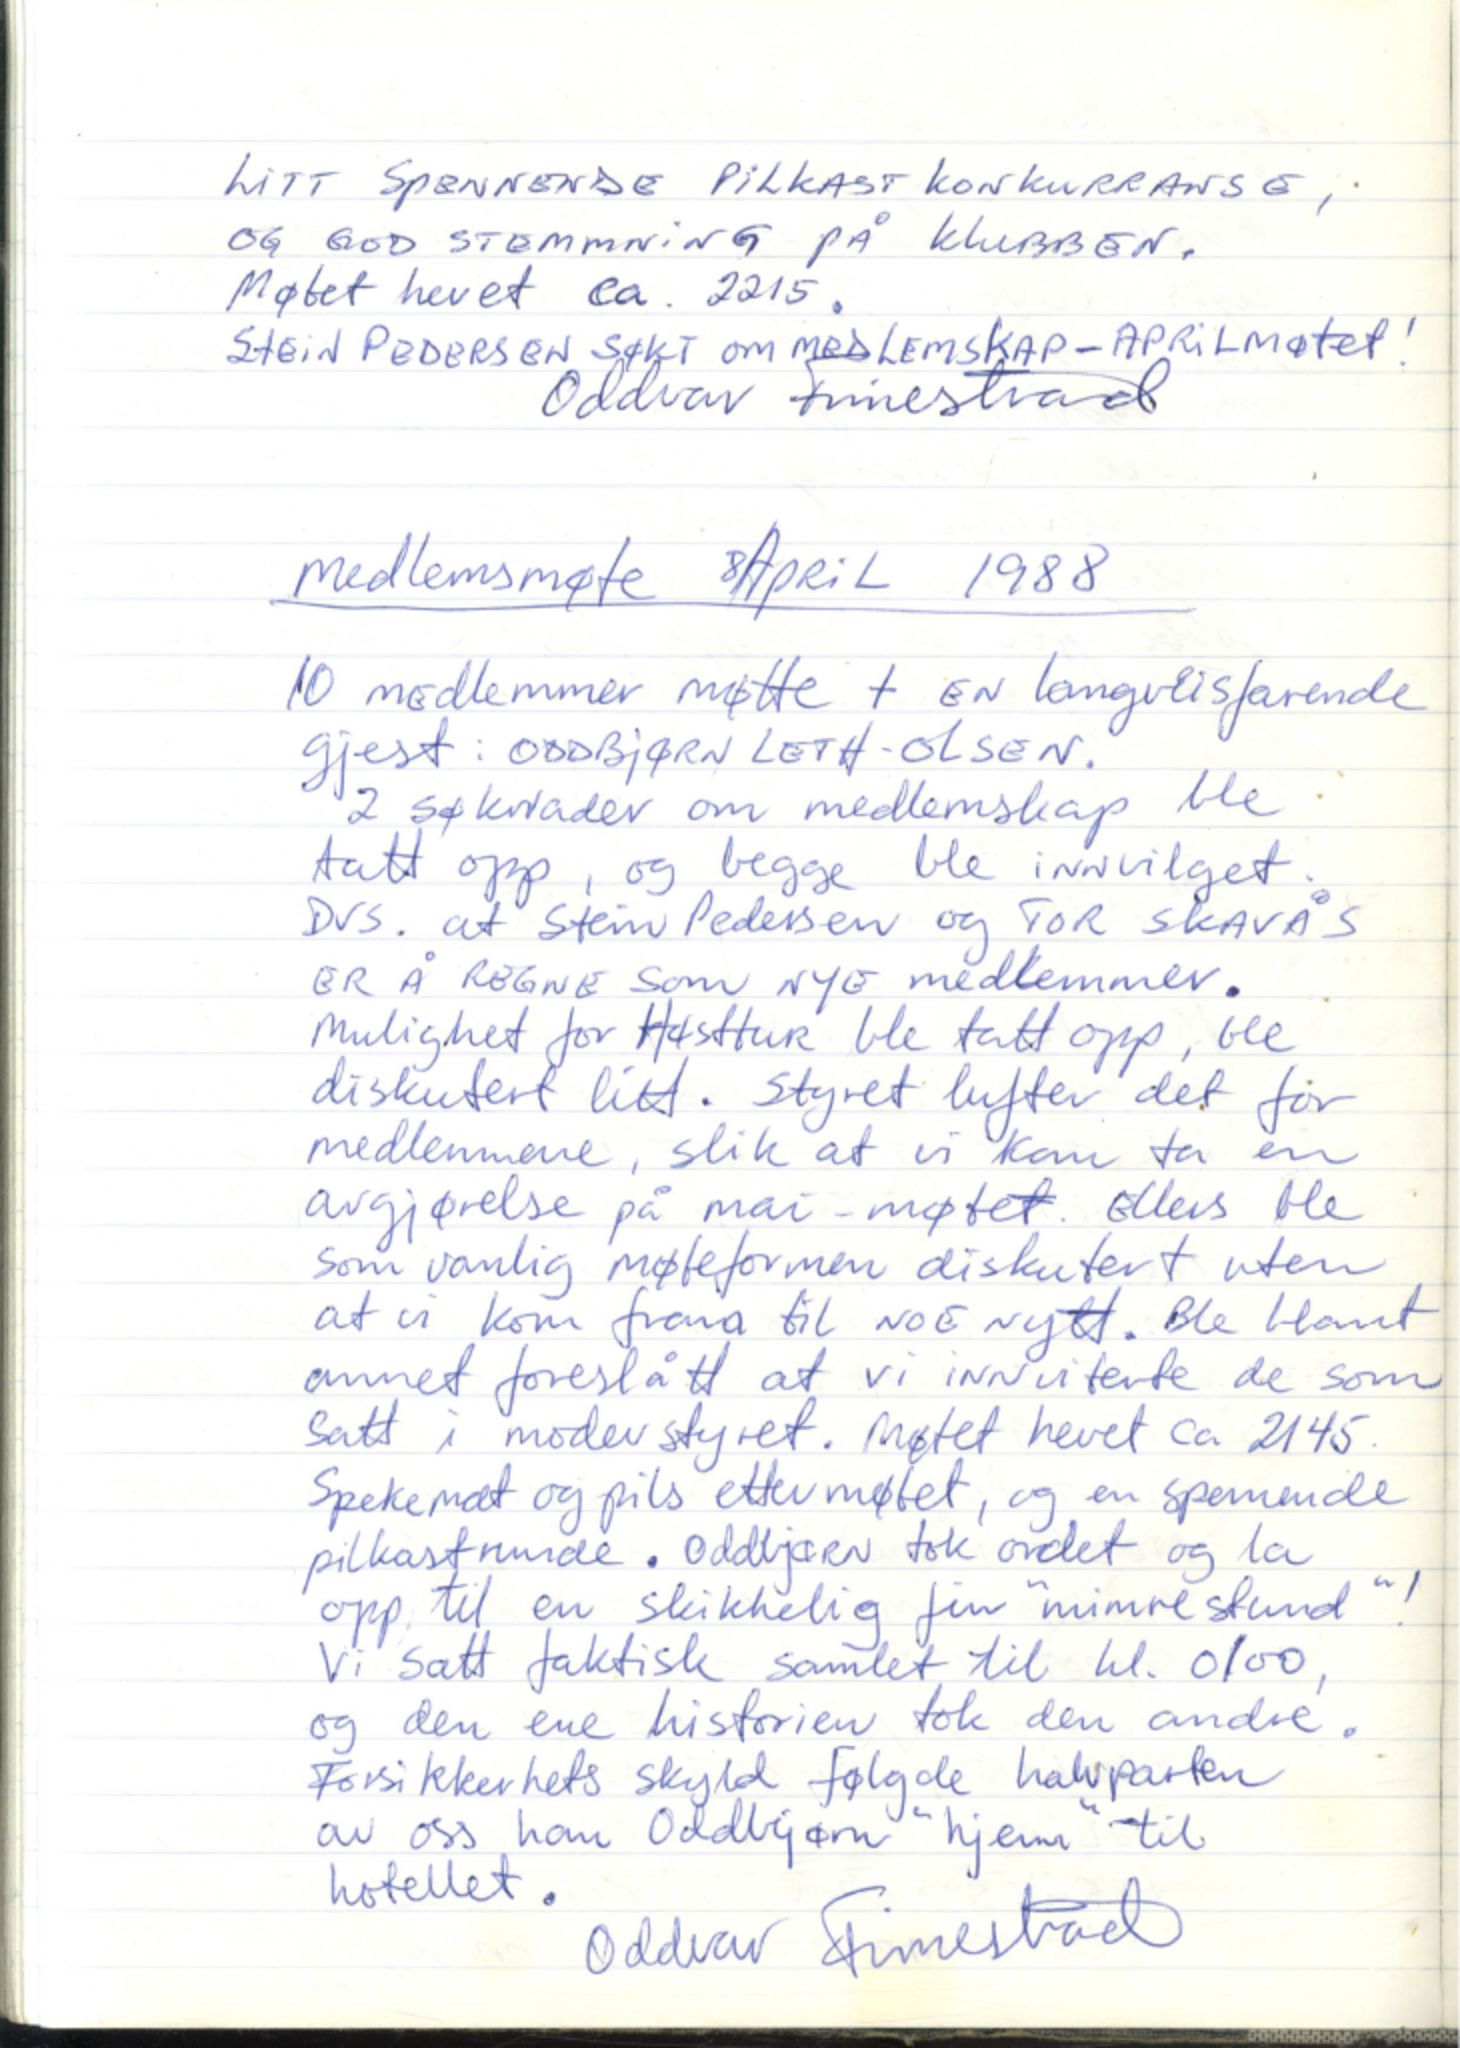 LiTT SPENNENDE PiLKAST KONKURRANSE,
OG GOD STEMMNiNG PÅ KLUBBEN.
Møtet hevet ca. 2215.
STEiN PEDERSEN SØKT om MEDLEMSKAP - APRiLMøtet!
Oddvar Finnestrad
Medlemsmøte 8 APRiL 1988
10 medlemmer møtte + EN langveisfarende
gjest: ODDBJØRN LETH-OLSEN.
2 søknader om medlemskap ble
tatt opp, og begge ble innvilget.
DVS. at Stein Pedersen og TOR SKAVÅS
ER Å REGNE som NYE medlemmer.
Mulighet for Høsttur ble tatt opp, ble
diskutert litt. Styret lufter det for
medlemmene, slik at vi kan ta en
avgjørelse på mai-møtet. Ellers ble
som vanlig møteformen diskutert uten
at vi kom fram til NOE nytt. Ble blant
annet foreslått at vi innviterte de som
satt i moderstyret. Møtet hevet ca 2145.
Spekemat og pils etter møtet, og en spennende
pilkastrunde. Oddbjørn tok ordet og la
opp til en skikkelig fin "mimrestund"!
Vi satt faktisk samlet til kl. 0100,
og den ene historien tok den andre.
Forsikkerhets skyld følgde halvparten
av oss han Oddbjørn "hjem" til
hotellet.
Oddvar Finnestrad